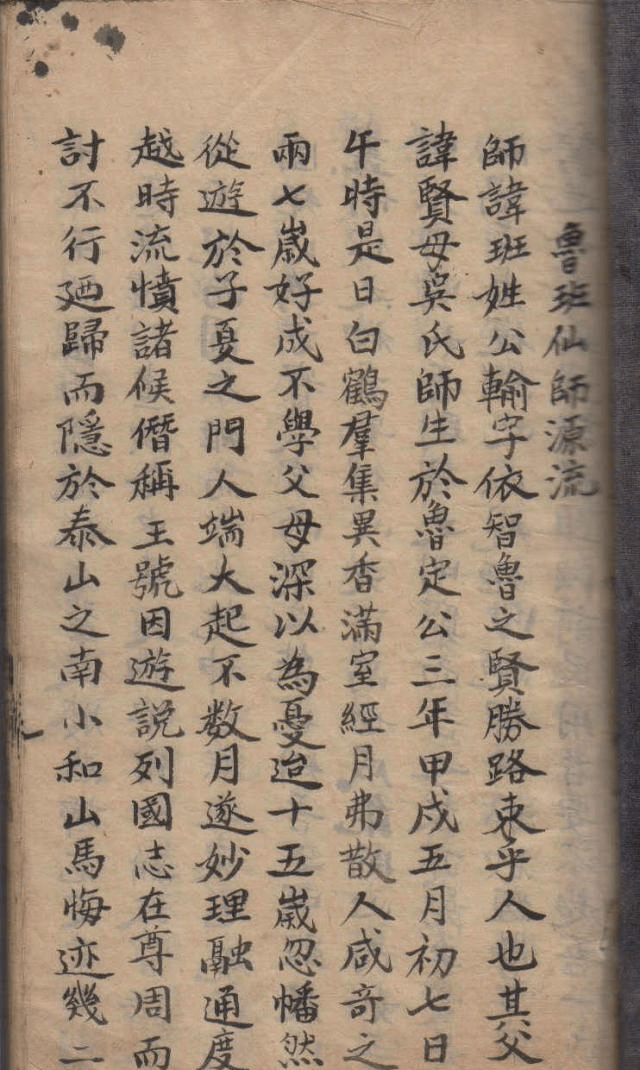 魯班仙師源流
師諱班姓公輸字依智魯之賢勝路東乎人也其父
諱賢母吳氏師生於魯定公三年甲戍五月初七日
午時是日白鶴羣集異香滿室經月弗散人咸奇之
兩七歲好成不學父母深以為憂迨十五嵗忽幡然
從遊於子夏之門人端大起不数月遂妙理融通度
越時流憤諸候僭稱王號因遊說列國志在尊周而
討不行廼歸而隱於泰山之南小和山馬悔迹幾二